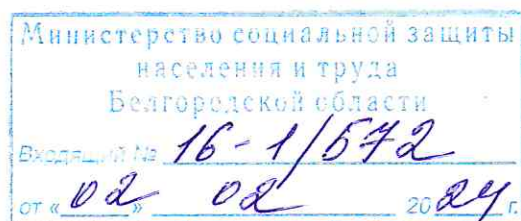 Министерство социальной защиты
населения и труда
Белгородской области
Входящий № 16-1/572
от «02» 02 2024 г.